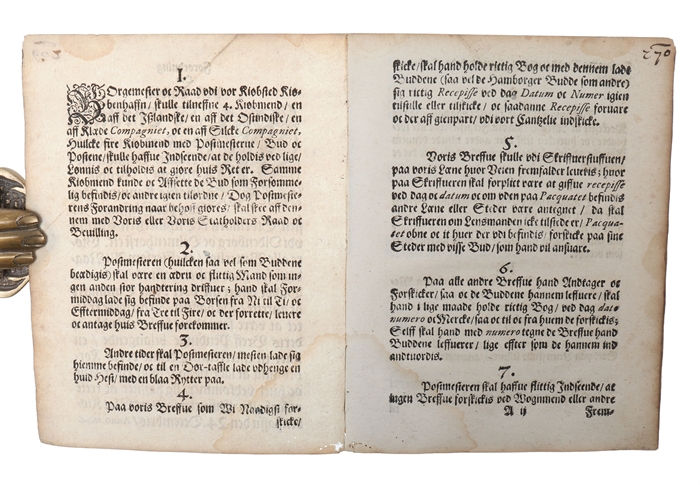 1.
BOrgemester oc Raad vdi vor Kiøbsted Kiø-
benhaffn / skulle tilneffne 4. Kiøbmend / en
aff det Ißlandske / en aff det Ostindiske / en
aff Klæde Compagniet, oc en aff Silcke Compagniet,
Huilcke fire Kiøbmend med Postmesterne / Bud oc
Postene / skulle haffue Indseende / at de holdis ved lige /
Lønnis oc tilholdis at giøre huis Ret er. Samme
Kiøbmend kunde oc Affsette de Bud som Forsømme-
lig befindis / oc andre igien tilordne / Dog Postmeste-
rens Forandring naar behoff giøres / skal skee aff den-
nem med Voris eller Voris Statholders Raad oc
Beuilling.
2.
Postmesteren (huilcken saa vel som Buddene
beædigis) skal være en ædru oc flittig Mand som in-
gen anden stor handtering driffuer ; hand skal For-
middag lade sig befinde paa Børsen fra Ni til Ti / oc
Efftermiddag / fra Tre til Fire / oc der forrette / leuere
oc antage huis Breffue forekommer.
3.
Andre tider skal Postmesteren / mesten lade sig
hiemme befinde / oc til en Oor-taffle lade vdhenge en
huid Hest / med en blaa Rytter paa.
4.
Paa voris Breffue som Wi Naadigst for-
skicke /
270
skicke / skal hand holde rictig Bog oc med dennem lade
Buddene (saa vel de Hamborger Budde som andre)
sig rictig Recepisse ved dag Datum oc Numer igien
tilstille eller tilskicke / oc saadanne Recepisse foruare
oc der aff gienpart / vdi vort Cantzelie indskicke.
5.
Voris Breffue skulle vdi Skriffuerstuffuen /
paa voris Læne huor Veien fremfalder leueris ; huor
paa Skriffueren skal forplict være at giffue recepisse
ved dag oc datum oc om vden paa Pacquatet befindis
andre Læne eller Steder være antegnet / da skal
Skriffueren om Lensmanden icke tilstede er / Pacqua-
tet obne oc it huer der vdi befindis / forskicke paa sine
Steder med visse Bud / som hand vil ansuare.
6.
Paa alle andre Breffue hand Andtager oc
Forskicker / saa oc de Buddene hannem leffuere / skal
hand i lige maade holde rictig Bog / ved dag dato
numero oc Mercke / saa oc til oc fra huem de forskickis ;
Self skal hand med numero tegne de Breffue hand
Buddene leffuerer / lige effter som de hannem ind
andtuordis.
7.
Postmesteren skal haffue flittig Indseende / at
ingen Breffue forskickis ved Wognmend eller andre
A ij Frem-